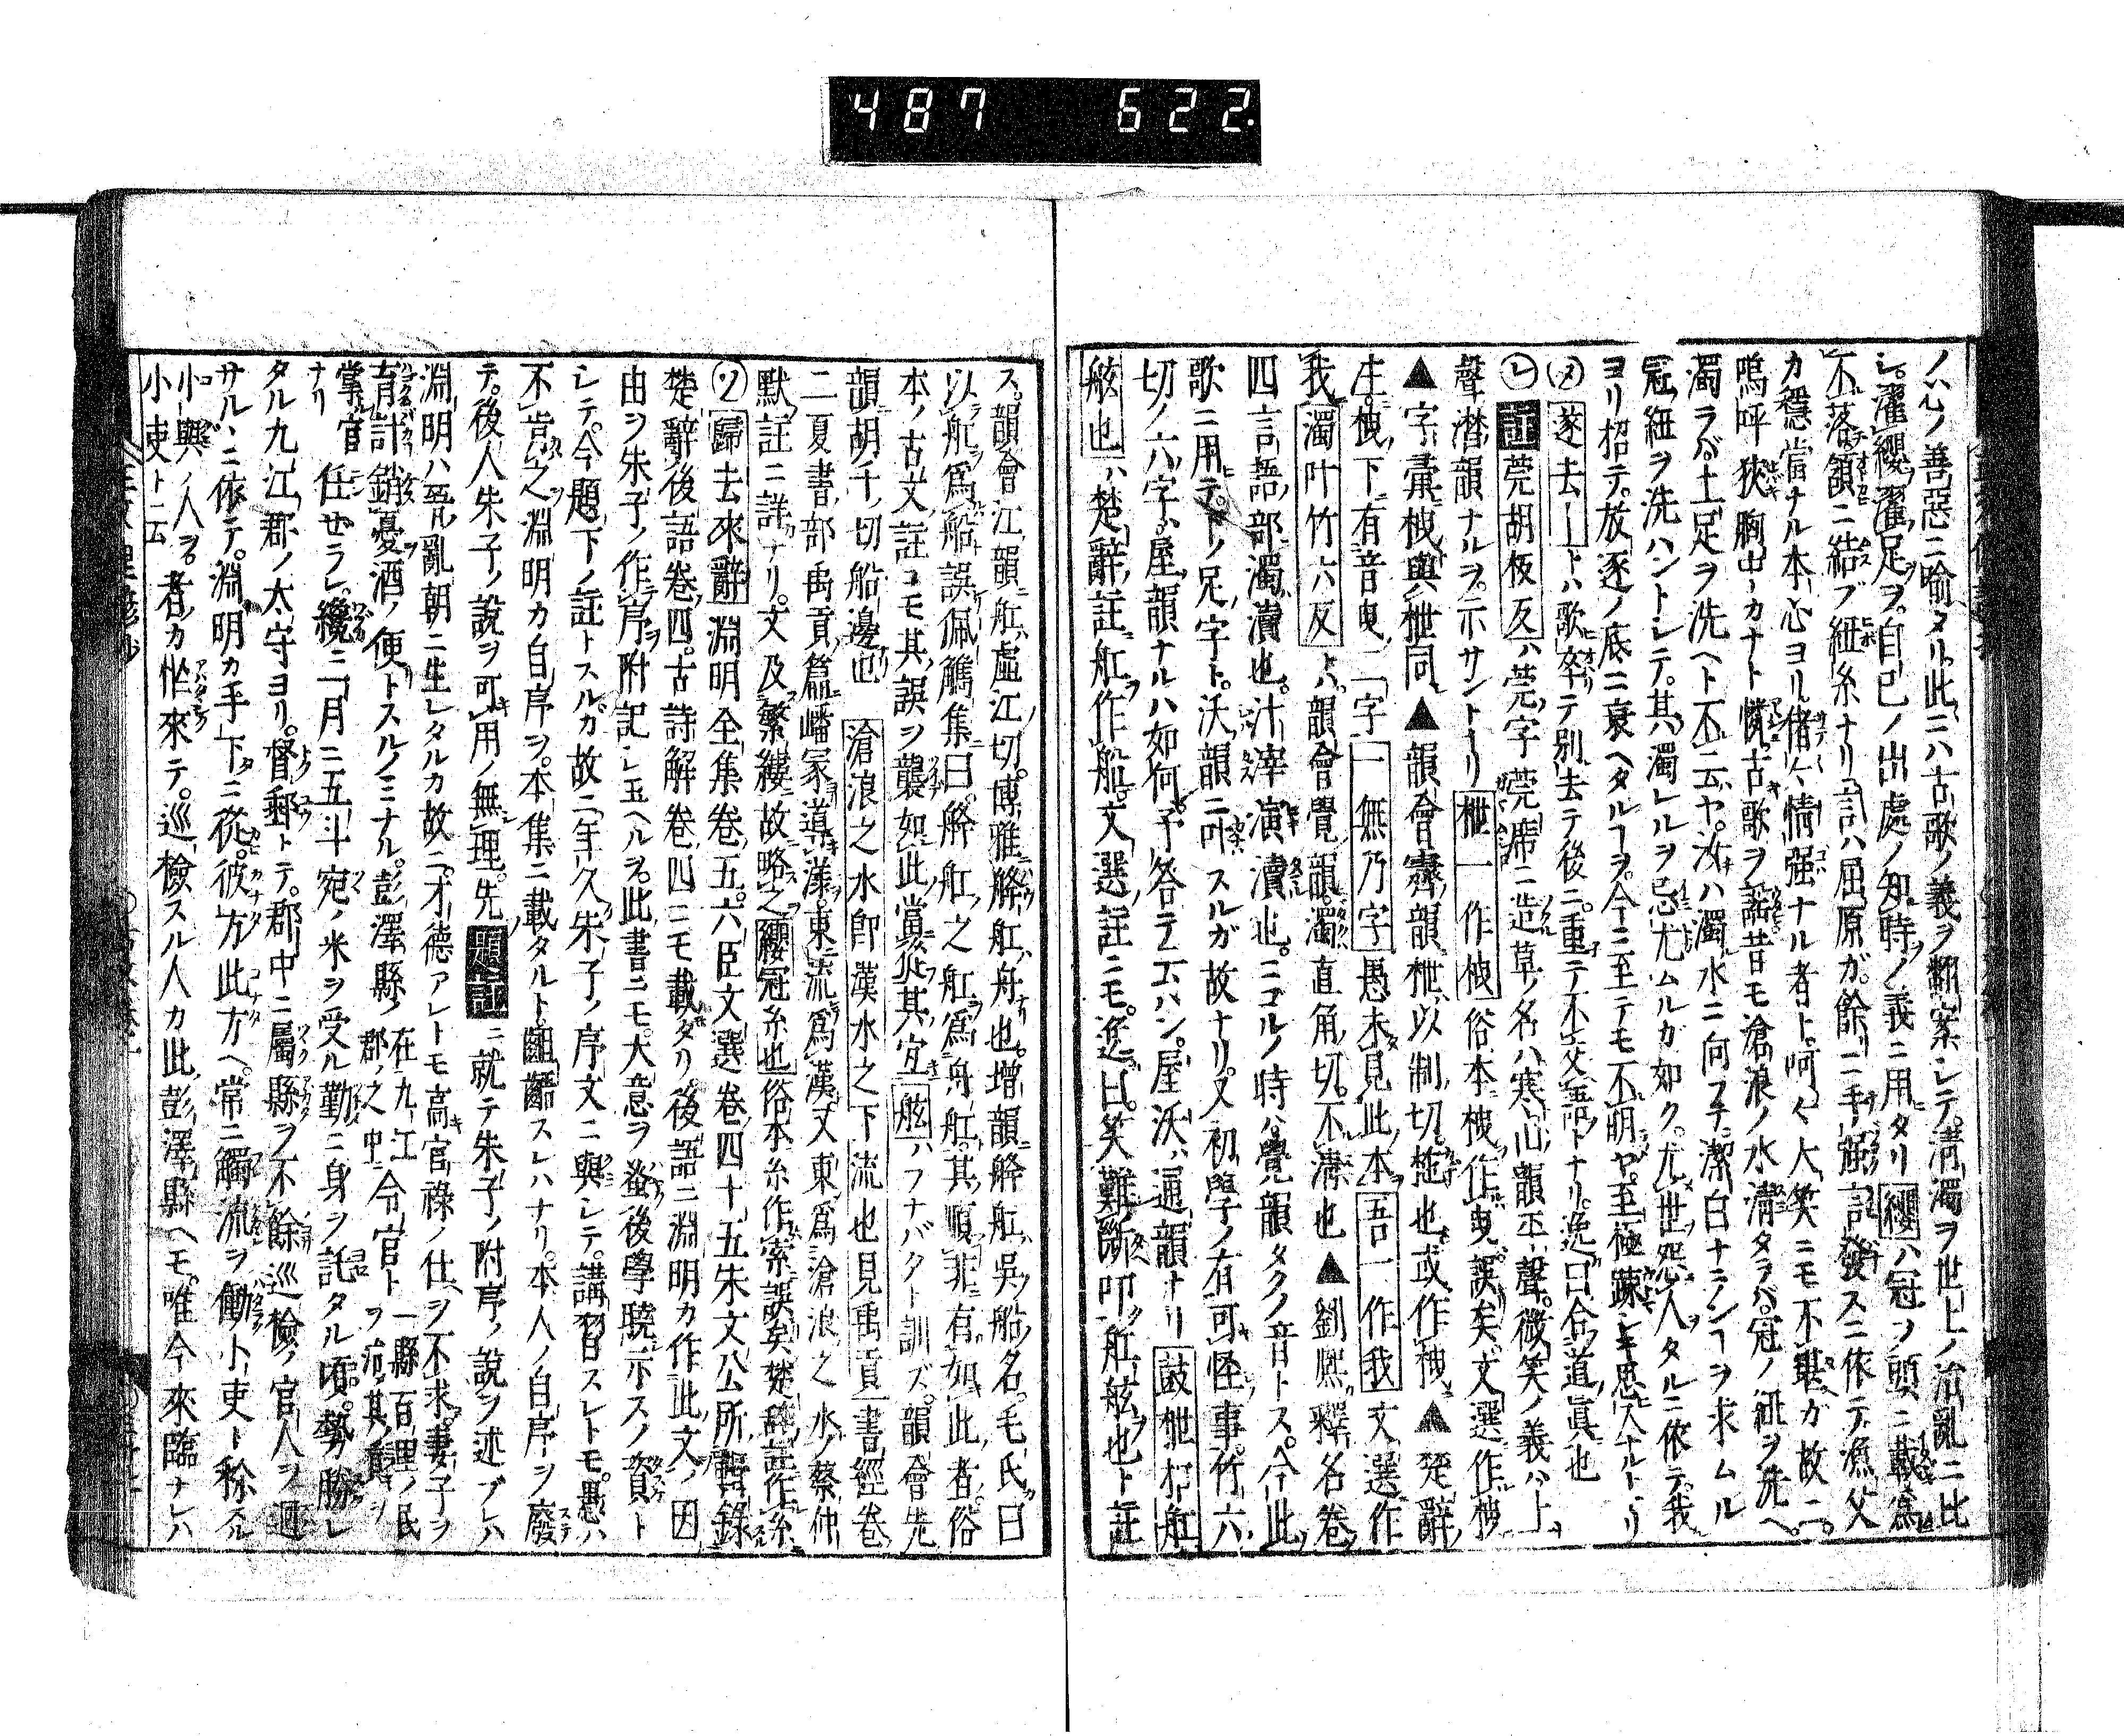 487 622.
ノ心ノ善惡ニ喩タル此ニハ古歌ノ義ヲ翻案シテ清濁ヲ世上ノ治亂ニ比
シ濯纓濯足ヲ自己ノ出處ノ知時ノ義ニ用タリ纓ハ冠ヲ頭ニ載爲
不落頷ニ結ブ紐糸ナリ言ハ屈原ガ餘ニ手強言發スニ依テ漁父
カ穩當ナル本心ヨリ偖々情强ナル者ト呵々大笑ニモ不堪ガ故ニ
嗚呼狹胸中カナト憐古歌ヲ謡昔モ滄浪ノ水清タラバ冠ノ紐ヲ洗ヘ
濁ラバ土足ヲ洗ヘト不云ヤ汝ハ濁水ニ向フテ潔白ナランヿヲ求ムル
冠紐ヲ洗ハントレテ其濁レルヲ忌尤ムルガ如ク尤世怨人タルニ依テ我
ヨリ招テ放逐ノ底ニ衰ヘタルヿヲ今ニ至テモ不明ヤ至極疎シキ思入ナルトリ
タ遂去ートハ歌卒テ別去テ後ニ重テ不交語トナリ逸口合道眞也
レ註莞胡板反ハ莞字莞席ニ造草ノ名ハ寒山韻平聲微笑ノ義ハ上
聲潜韻ナルヲ示サントリ枻一作栧俗本栧作曳誤矣文選作栧
▲字彙栧與枻同▲韻會霽韻枻以制切楫也或作栧▲楚辭
注栧下有音曳二字一無乃字愚未見此本吾一作我文選作
我濁叶竹六反トハ韻會覺韻濁直角切不清也▲劉熙釋名卷
四言語部濁瀆也汁滓演瀆也ニゴルノ時ハ覺韻タクノ音トスヘ今此
歌ニ用テ下ノ足字ト沃韻ニ叶スルガ故ナリ又初學ノ有可怪事竹六
切ノ六字ハ屋韻ナルハ如何予答テ云ハン屋沃ハ通韻ナリ鼓枻扣舡
舷也ハ楚辭註舡作船文選註ニモ逸曰笑難斷叩舡舷也ト註
ス韻會江韻舡虛江切博雅舽舡舟也增韻舽舡吳船名毛氏曰
以舡爲船誤佩觿集曰舽舡之舡爲舟舡其順非有如此者俗
本ノ古文註ニモ其誤ヲ襲如此當從其宜舷ハフナバタト訓ズ韻會先
韻胡千切船邊也滄浪之水卽漢水之下流也見禹貢書經卷
二夏書部禹貢篇嶓冢道漾東流爲漢又東爲滄浪之水ノ蔡仲
默註ニ詳ナリ文及繁縷故略之纓冠糸也俗本糸作索誤矣楚辭註作糸
ソ歸去來辭淵明全集卷五六臣文選卷四十五朱文公所輯錄
楚辭後語卷四古詩解卷四ニモ載タリ後語ニ淵明カ作此文ノ因
由ヲ朱子ノ作序附記シ玉ヘルヲ此書ニモ大意ヲ後學曉示スノ資ト
レテ今題下ノ註トスルガ故ニ年久朱子ノ序文ニ與シテ講習スレトモ愚ハ
不肯之淵明カ自序ヲ本集ニ載タルト齟齬スレハナリ本人ノ自序ヲ廢
テ後人朱子ノ說ヲ可用ノ無理先題註ニ就テ朱子ノ附序ノ說ヲ述ブレハ
淵明ハ晉亂朝ニ生レタルカ故ニ才德アレトモ高官祿ノ仕ヲ不求妻子ヲ
育計銷憂酒ノ便トスルノミナル彭澤縣ノ在九江郡ノ之中令官ト一縣百里ノ民ヲ治其ヲ
掌官ナリ任ゼラレ纔ニ一月ニ五斗宛ノ米ヲ受ル勤ニ身ヲ託タル頃勢勝レ
タル九江郡ノ太守ヨリ督郵トテ郡中ニ屬縣ヲ不餘巡檢ノ官人ヲ廻
サルヽニ依テ淵明カ手下ニ從彼方此方ヘ常ニ觸流ヲ働ト吏ト稱スル
小輿ノ人ヲ小吏ト云者カ怱來テ巡檢スル人カ此彭澤縣ヘモ唯今來臨ナレハ